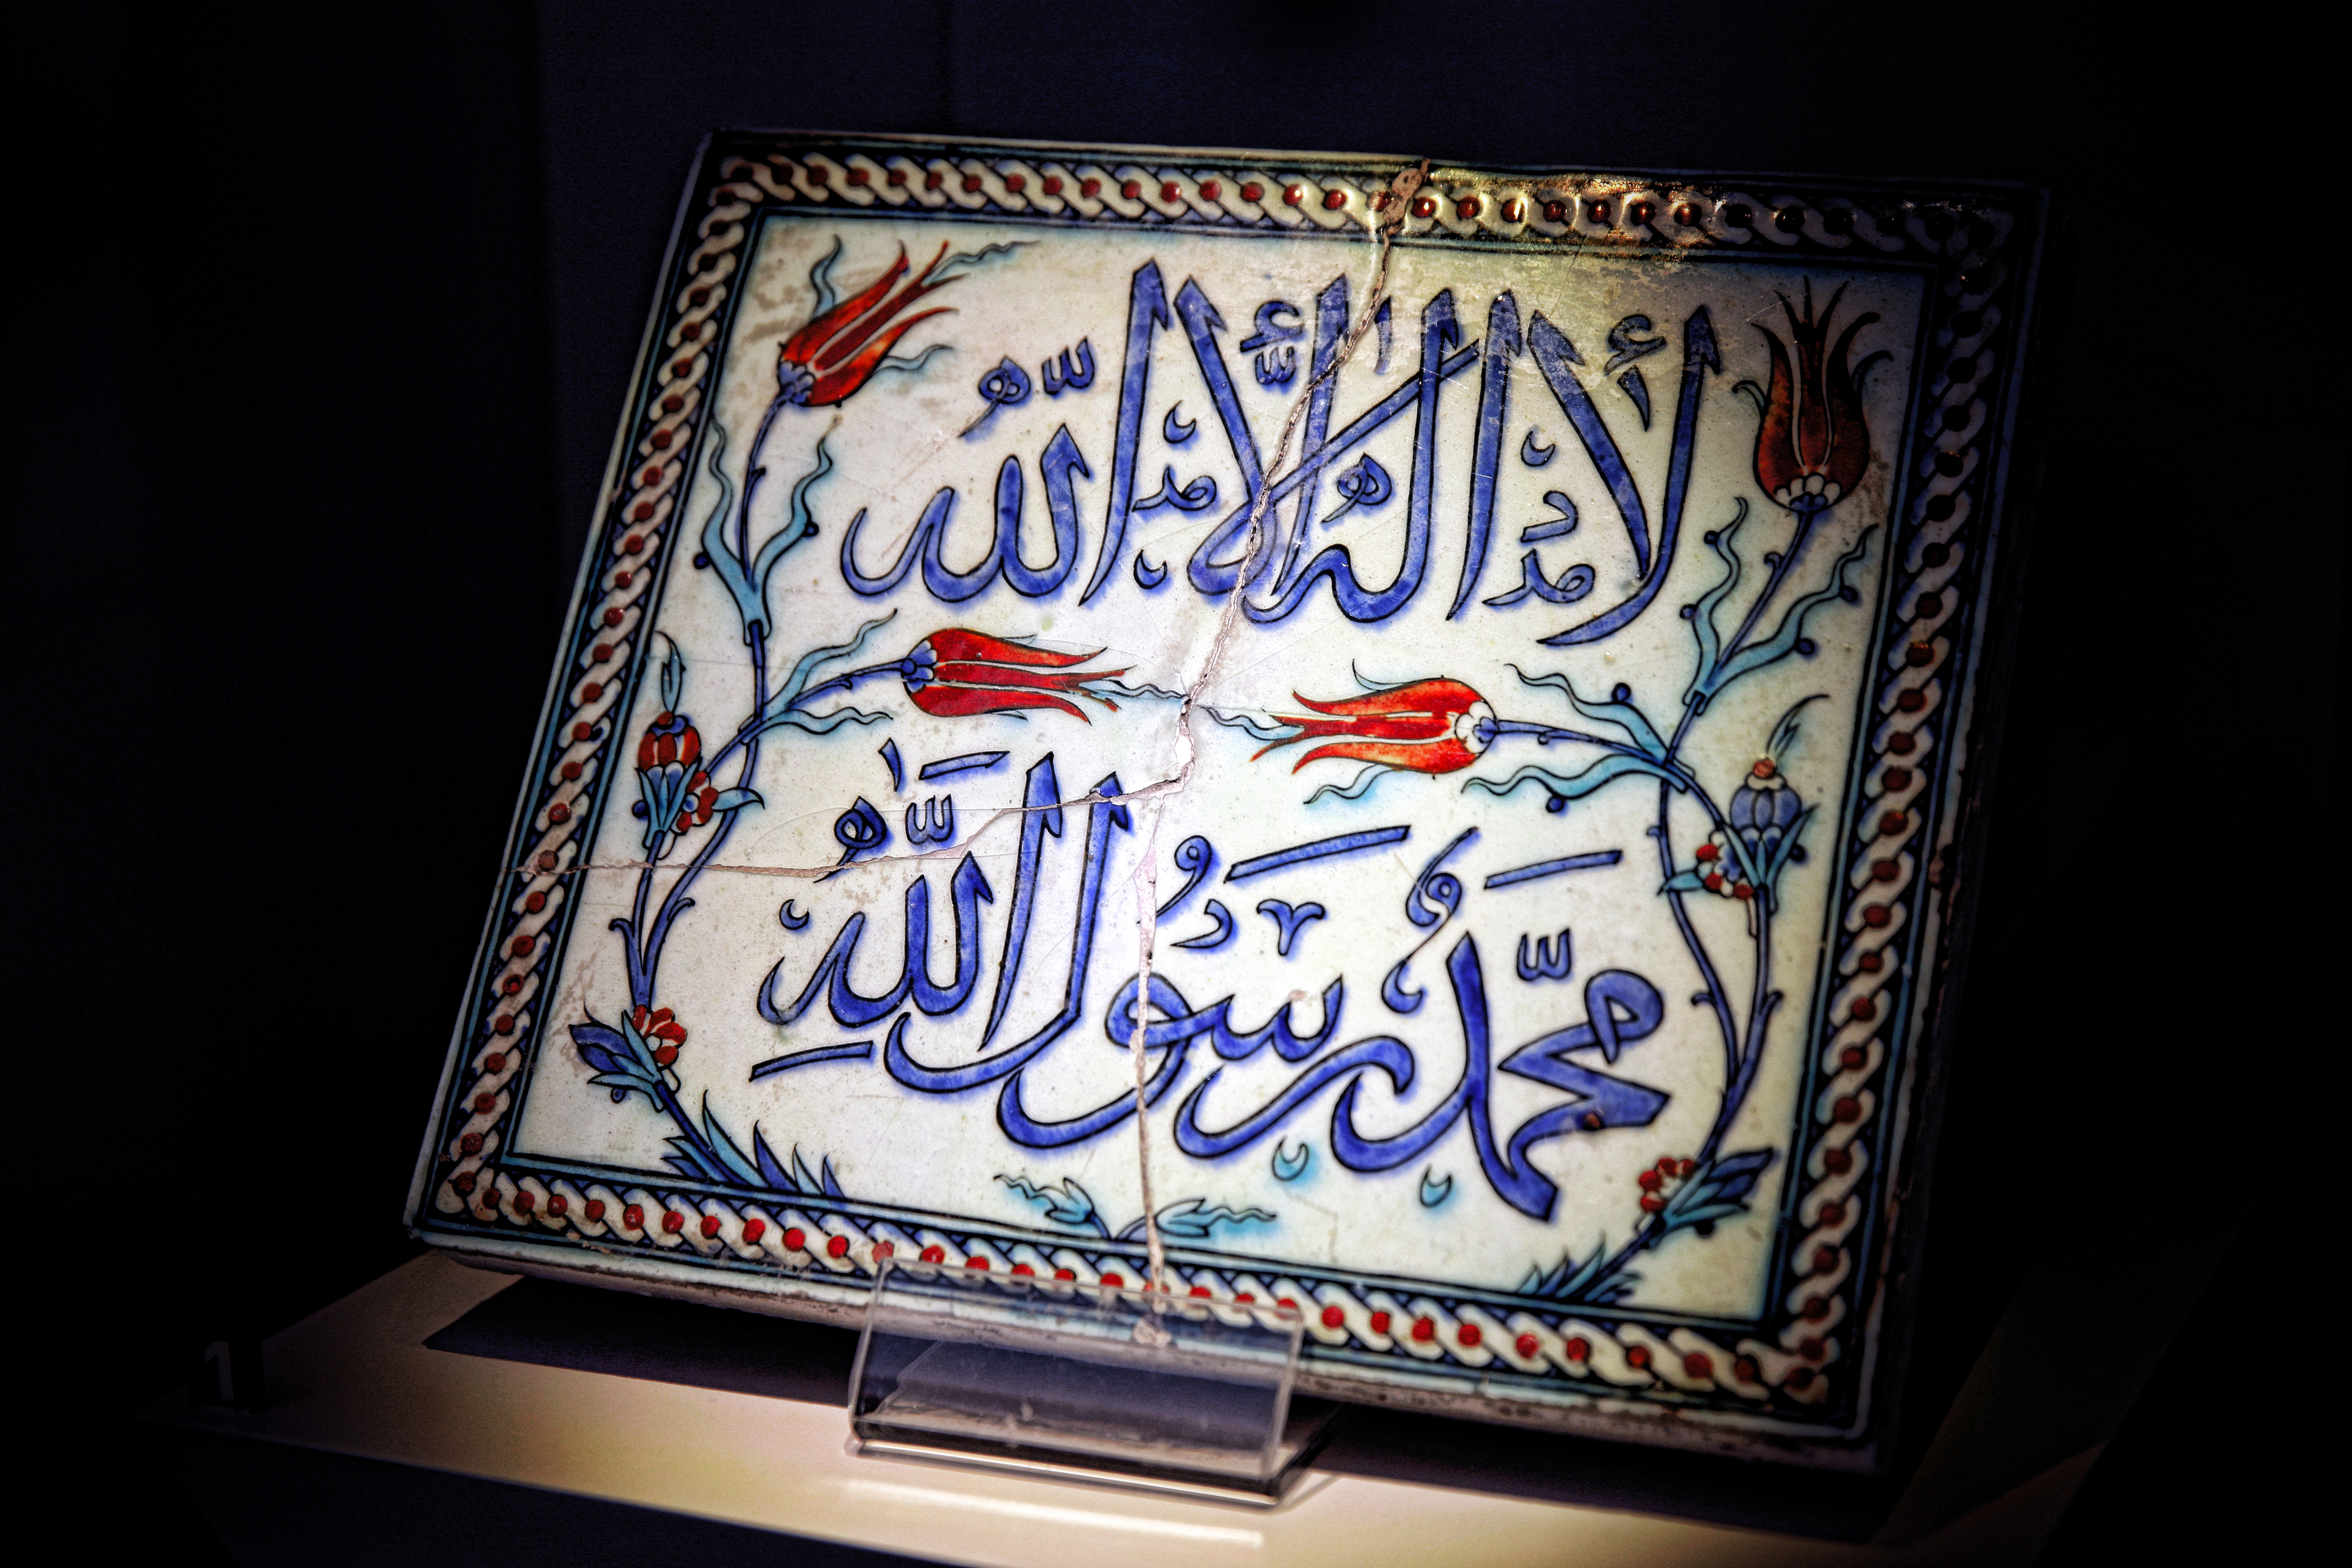 لا إله إلا الله
محمد رسول الله
1